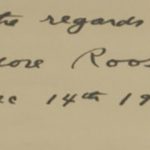 the regards
dore Roos
ec 14th 19